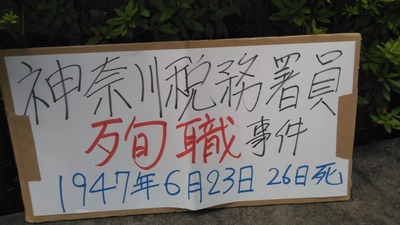 神奈川税務署員
殉職事件
1947年6月23日 26日死